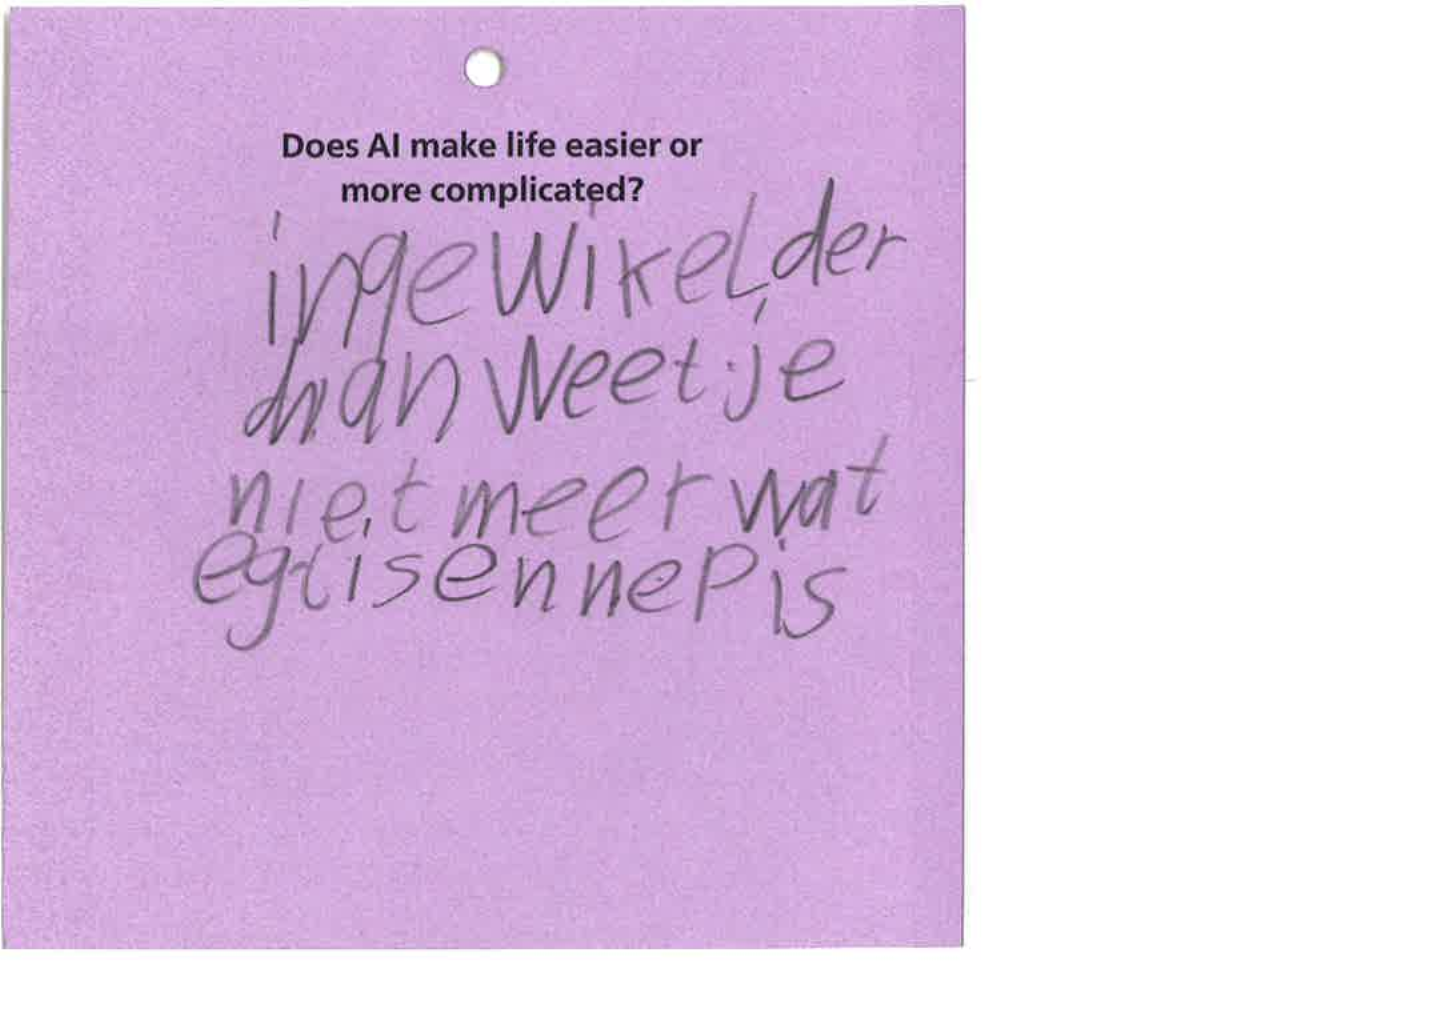 Does AI make life easier or
more complicated?
ingewikelder
dan weet je
niet meer wat
egt is en nep is